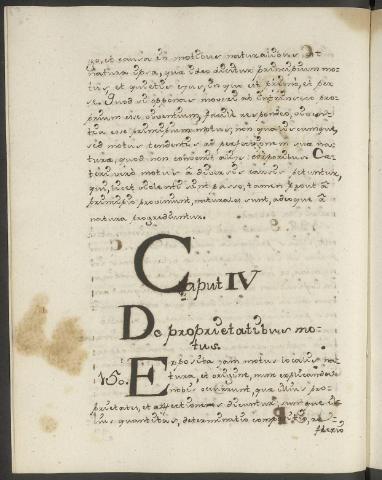 go, et causa in motibus naturalibus est
natura ipsa, quia ideo dicitur principium mo-
tus, et quietis ejus, in quo est primo, et per
se. Quod si opponas moveri ab extrinseco pro-
prium esse viventium, facile respondeo, viven-
tia esse principium motus, non qualiscumque,
sed motus tendentis ad perfectionem in sua na-
tura, quod non convenit aliis corporibus. Cae-
teri vero motus a diversis causis petuntur,
qui, licet violenti sint passo, tamen prout a
principio proveniunt, naturales sunt, adeoque a
natura progrediuntur.
Caput IV
De proprietatibus mo-
tus.
150. Exposita jam motus localis na-
tura, et origine, nunc explicandae
nobis occurrunt, quae illius pro-
prietates, et affectiones dicuntur, suntque il-
lius quantitas, determinatio compositio, re-
flexio